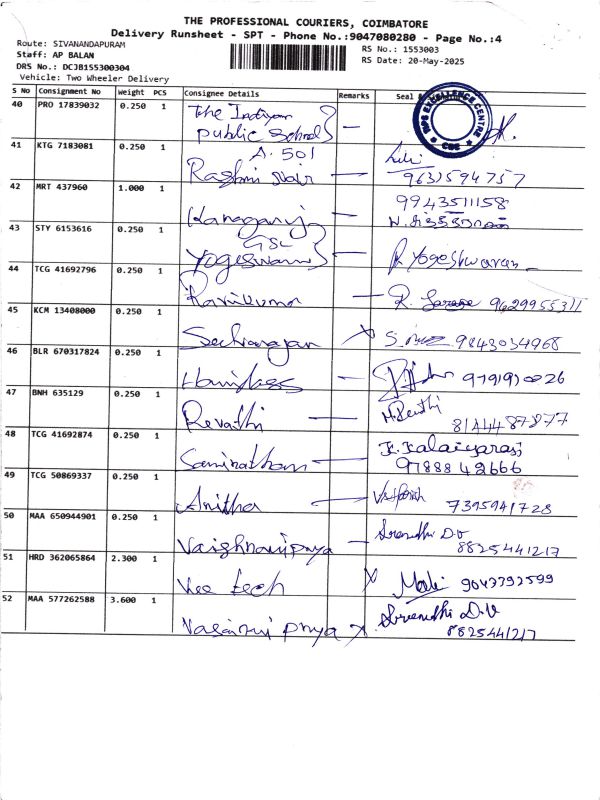 THE PROFESSIONAL COURIERS, COIMBATORE
Delivery Runsheet - SPT - Phone No.:9047080280 - Page No.:4
Route: SIVANANDAPURAM
Staff: AP BALAN
DRS No.: DCJB155300304
Vehicle: Two Wheeler Delivery
RS No.: 1553003
RS Date: 20-May-2025
S No Consignment No Weight PCS Consignee Details Remarks Seal
40 PRO 17839032 0.250 1 The Indian
public School
41 KTG 7183081 0.250 1 A. 501
Rashmi Nair 9631594757
42 MRT 437960 1.000 1 9943511158
Kanagaraj
43 STY 6153616 0.250 1 GSL
Yogeswaran R. Yogeshwaran
44 TCG 41692796 0.250 1
Ravikumar 9629955311
45 KCM 13408000 0.250 1
9843034968
46 BLR 670317824 0.250 1
Haridass
47 BNH 635129 0.250 1
Revathi 8144487877
48 TCG 41692874 0.250 1 K. Kalaiyarasi
Saminathan 9788842666
49 TCG 50869337 0.250 1
Anitha 7395941728
50 MAA 650944901 0.250 1 Sreenidhi D.V
Vaishnavipriya 8825441217
51 HRD 362065864 2.300 1
Vee tech 9043792599
52 MAA 577262588 3.600 1 Sreenidhi D.V
priya 8825441217
EXCELLENCE CENTRE